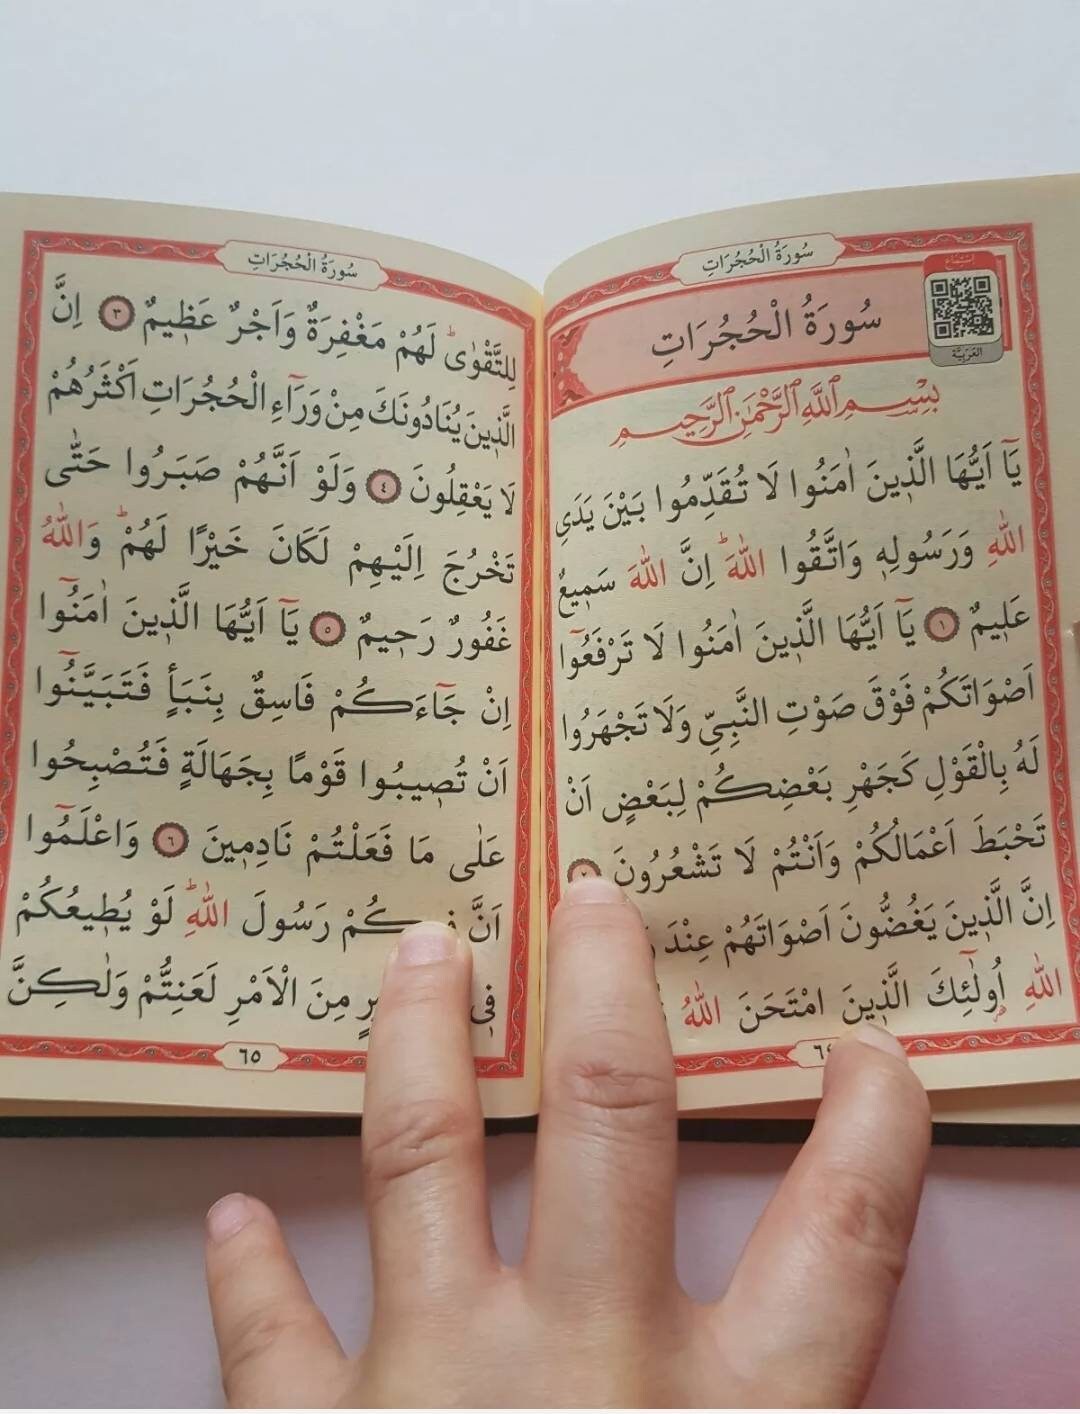 سُورَةُ الْحُجُرَاتِ
اِسْتِمَاع
الْعَرَبِيَّة
سُورَةُ الْحُجُرَاتِ
بِسْمِ اللّٰهِ الرَّحْمٰنِ الرَّحِيمِ
يَٓا اَيُّهَا الَّذ۪ينَ اٰمَنُوا لَا تُقَدِّمُوا بَيْنَ يَدَيِ
اللّٰهِ وَرَسُولِه۪ وَاتَّقُوا اللّٰهَۜ اِنَّ اللّٰهَ سَم۪يعٌ
عَل۪يمٌ ١ يَٓا اَيُّهَا الَّذ۪ينَ اٰمَنُوا لَا تَرْفَعُٓوا
اَصْوَاتَكُمْ فَوْقَ صَوْتِ النَّبِيِّ وَلَا تَجْهَرُوا
لَهُ بِالْقَوْلِ كَجَهْرِ بَعْضِكُمْ لِبَعْضٍ اَنْ
تَحْبَطَ اَعْمَالُكُمْ وَاَنْتُمْ لَا تَشْعُرُونَ
اِنَّ الَّذ۪ينَ يَغُضُّونَ اَصْوَاتَهُمْ عِنْدَ
اللّٰهِ اُو۬لٰٓئِكَ الَّذ۪ينَ امْتَحَنَ اللّٰهُ
سُورَةُ الْحُجُرَاتِ
لِلتَّقْوٰىۜ لَهُمْ مَغْفِرَةٌ وَاَجْرٌ عَظ۪يمٌ ٣ اِنَّ
الَّذ۪ينَ يُنَادُونَكَ مِنْ وَرَٓاءِ الْحُجُرَاتِ اَكْثَرُهُمْ
لَا يَعْقِلُونَ ٤ وَلَوْ اَنَّهُمْ صَبَرُوا حَتّٰى
تَخْرُجَ اِلَيْهِمْ لَكَانَ خَيْرًا لَهُمْۜ وَاللّٰهُ
غَفُورٌ رَح۪يمٌ ٥ يَٓا اَيُّهَا الَّذ۪ينَ اٰمَنُٓوا
اِنْ جَٓاءَكُمْ فَاسِقٌ بِنَبَأٍ فَتَبَيَّنُٓوا
اَنْ تُص۪يبُوا قَوْمًا بِجَهَالَةٍ فَتُصْبِحُوا
عَلٰى مَا فَعَلْتُمْ نَادِم۪ينَ ٦ وَاعْلَمُٓوا
اَنَّ ف۪يكُمْ رَسُولَ اللّٰهِۜ لَوْ يُط۪يعُكُمْ
ف۪ي مِنَ الْاَمْرِ لَعَنِتُّمْ وَلٰكِنَّ
٦٥